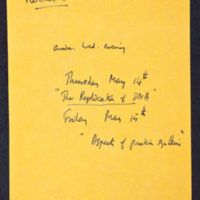 arrive. Wed. evening
Thursday May 14th
"The Replication of DNA"
Friday May 15th
"Aspects of protein synthesis"